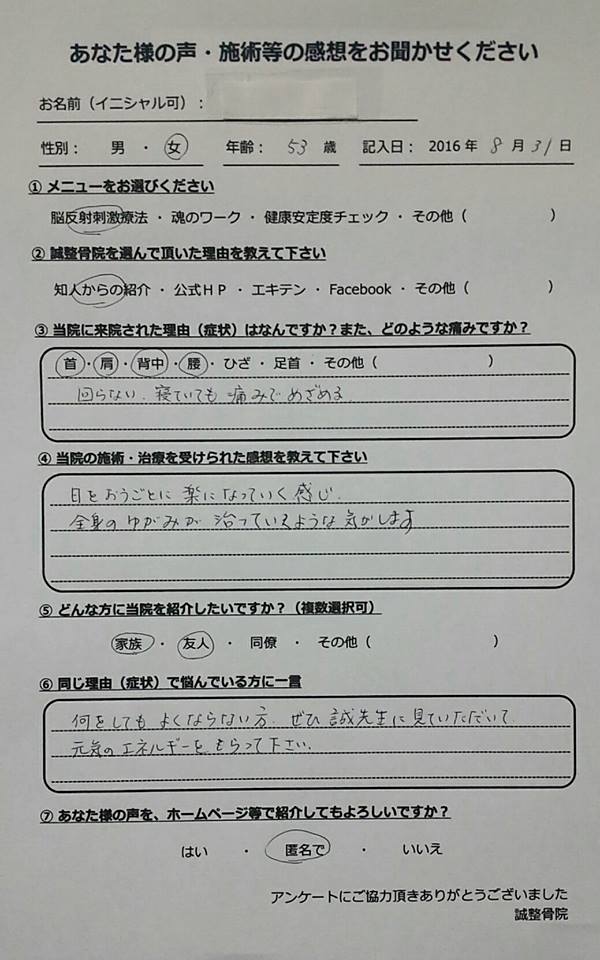 あなた様の声・施術等の感想をお聞かせください
お名前（イニシャル可）：
性別： 男 ・ 女 年齢： 53 歳 記入日： 2016 年 8 月 31 日
① メニューをお選びください
脳反射刺激療法 ・ 魂のワーク ・ 健康安定度チェック ・ その他（ ）
② 誠整骨院を選んで頂いた理由を教えて下さい
知人からの紹介 ・ 公式ＨＰ ・ エキテン ・ Facebook ・ その他（ ）
③ 当院に来院された理由（症状）はなんですか？また、どのような痛みですか？
首・肩・背中・腰・ひざ・足首・その他（ ）
回らない．寝ていても 痛みでめざめる
④ 当院の施術・治療を受けられた感想を教えて下さい
日をおうごとに 楽になっていく感じ．
全身のゆがみが 治っているような気がします
⑤ どんな方に当院を紹介したいですか？（複数選択可）
家族 ・ 友人 ・ 同僚 ・ その他（ ）
⑥ 同じ理由（症状）で悩んでいる方に一言
何をしてもよくならない方．ぜひ 誠先生に見ていただいて
元気のエネルギーをもらって下さい．
⑦ あなた様の声を、ホームページ等で紹介してもよろしいですか？
はい ・ 匿名で ・ いいえ
アンケートにご協力頂きありがとうございました
誠整骨院